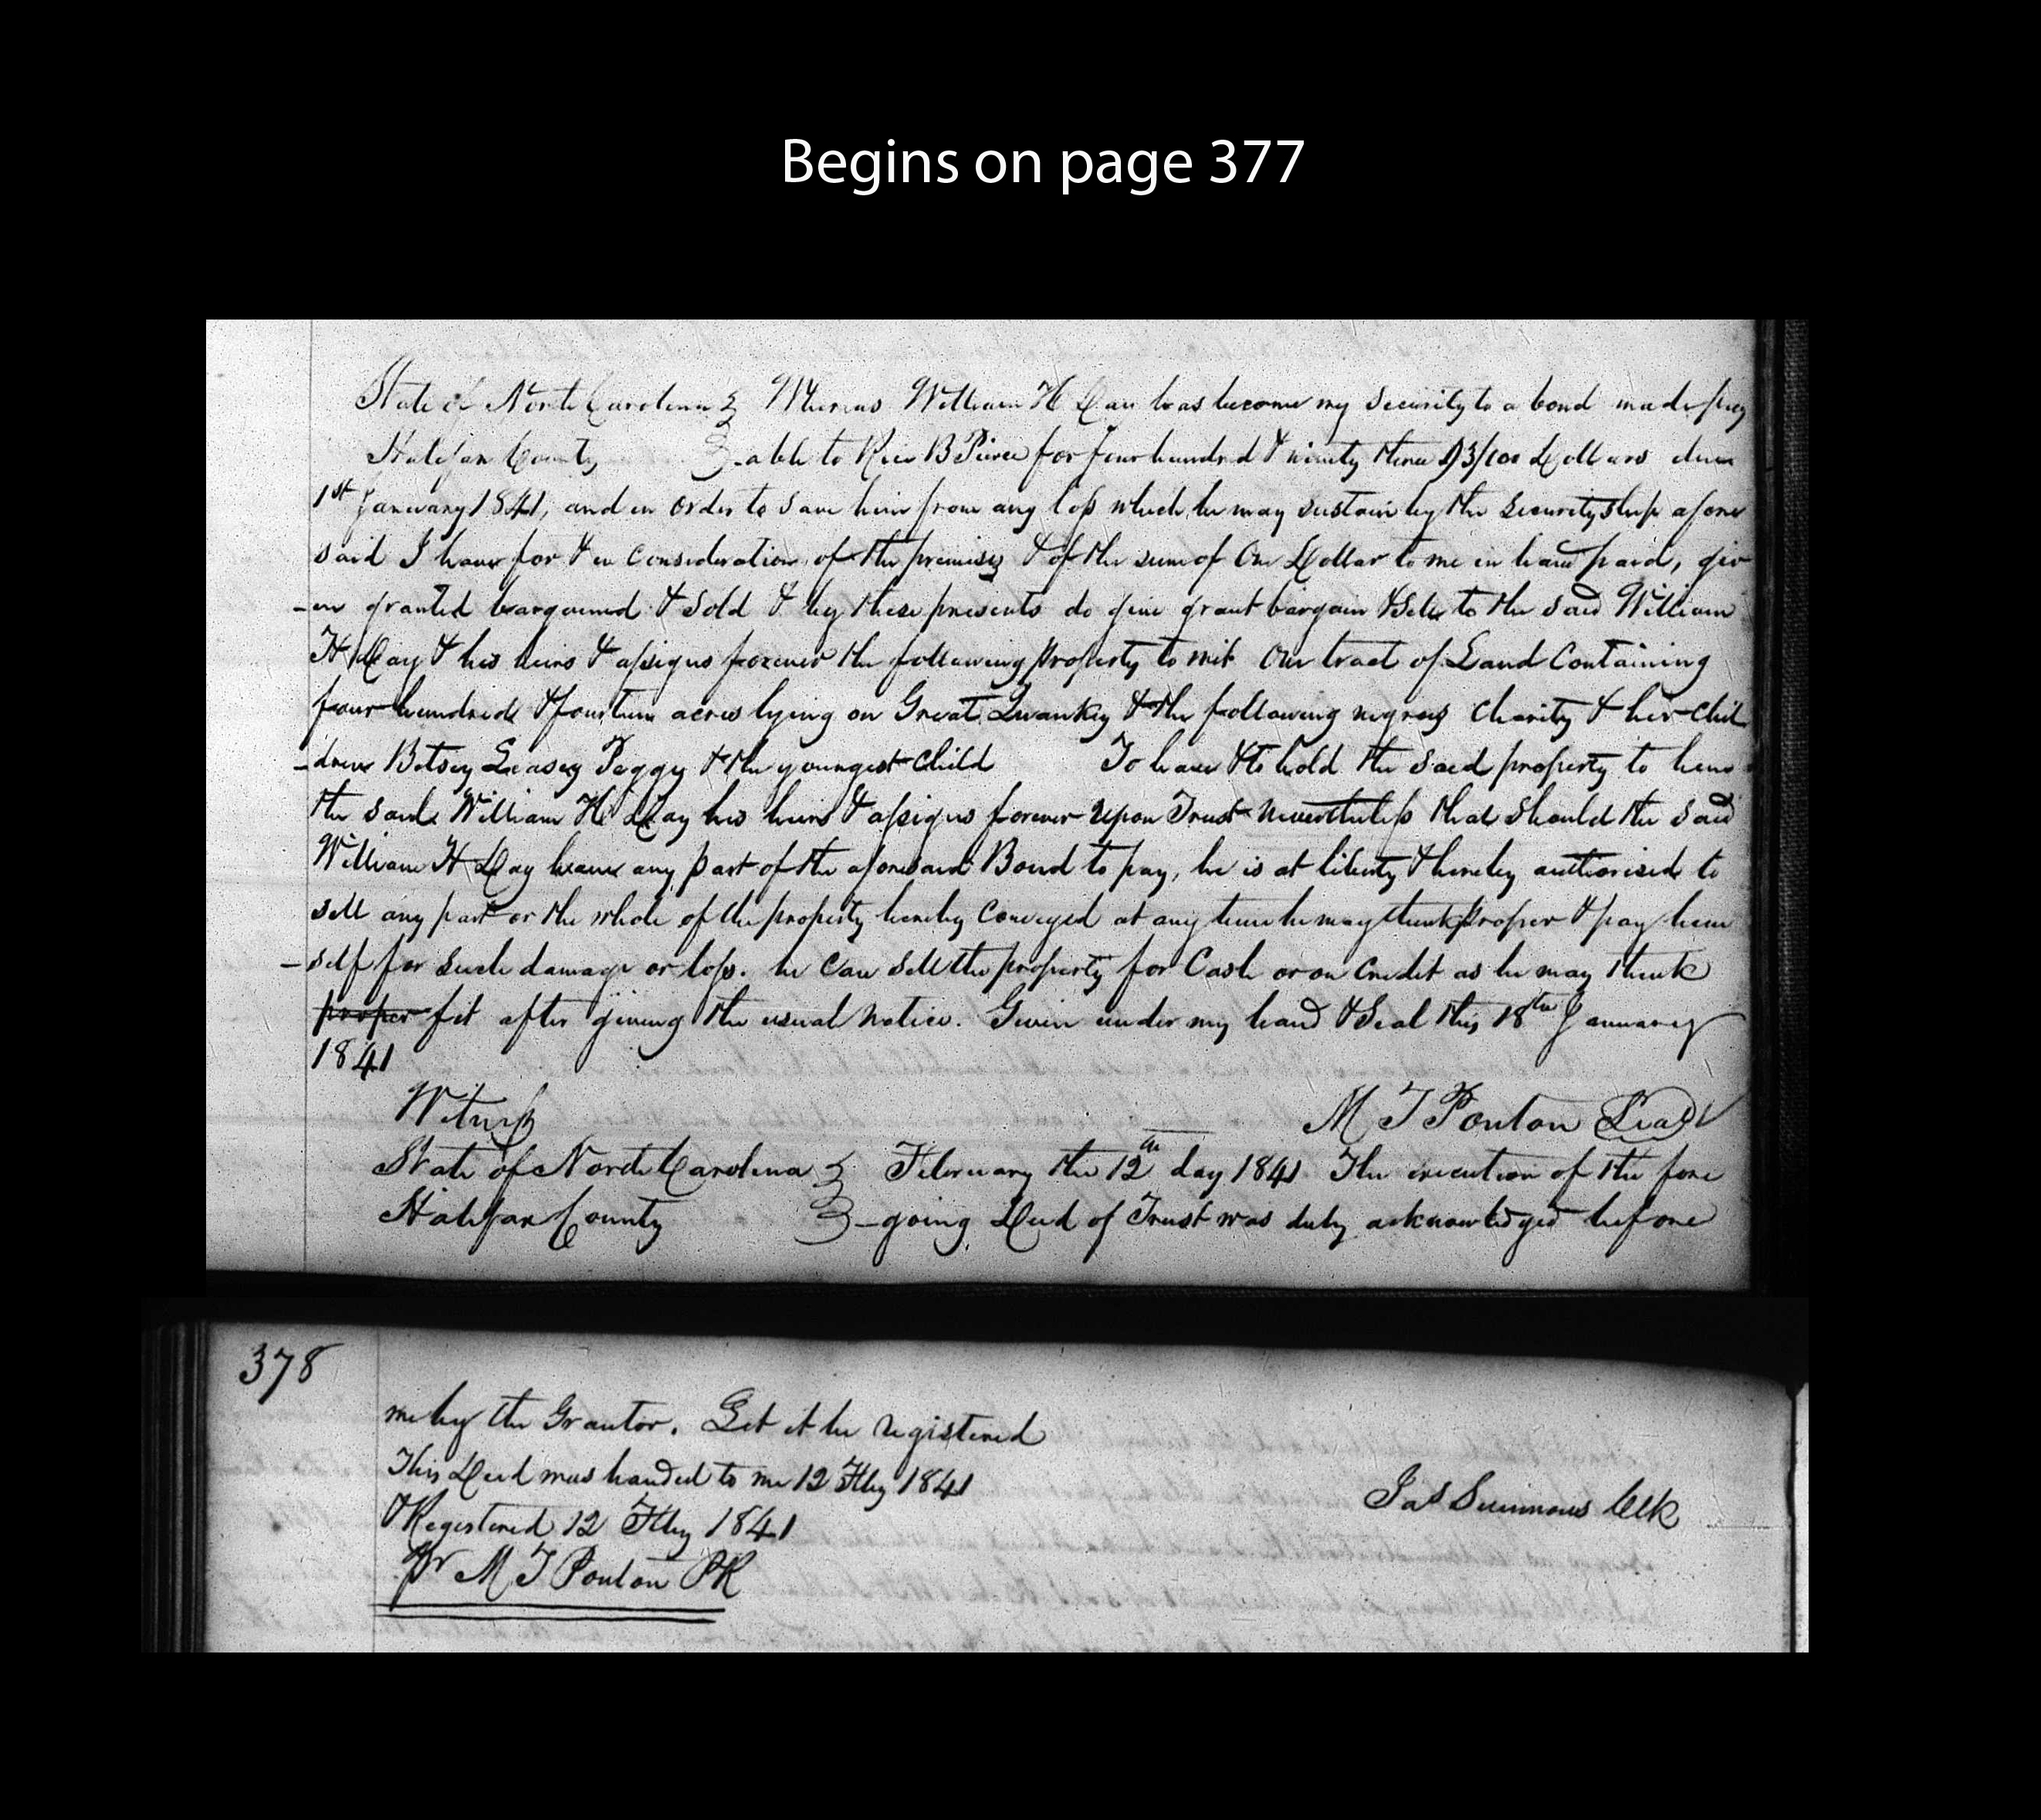 Begins on page 377
State of North Carolina } Whereas William H Day has become my security to a bond made pay
Halifax County } -able to Rice B Pierce for four hundred & ninety three 93/100 Dollars due
1st January 1841, and in order to save him from any loss which he may sustain by the securityship afore
said I have for & in consideration of the premises & of the sum of One Dollar to me in hand paid, giv
-en granted bargained & sold & by these presents do give grant bargain & sell to the said William
H Day & his heirs & assigns forever the following property to wit One tract of Land Containing
four hundred & fourteen acres lying on Great Quankey & the following negroes Charity & her Chil
-dren Betsy Leasey Peggy & the youngest Child To have & to hold the said property to him
the said William H Day his heirs & assigns forever upon Trust nevertheless that should the said
William H Day have any part of the aforesaid Bond to pay, he is at liberty & hereby authorised to
sell any part or the whole of the property hereby Conveyed at any time he may think proper & pay him
-self for such damage or loss. he can sell the property for Cash or on Credit as he may think
proper fit after giving the usual notice. Given under my hand & Seal this 18th January
1841
Witness M T Ponton Seal
State of North Carolina } February the 12th day 1841 The execution of the fore
Halifax County } -going Deed of Trust was duly acknowledged before
378
me by the Grantor. Let it be registered
This Deed was handed to me 12 Feby 1841
Jas Simmons Clk
& Registered 12 Feby 1841
Pr M T Ponton PR